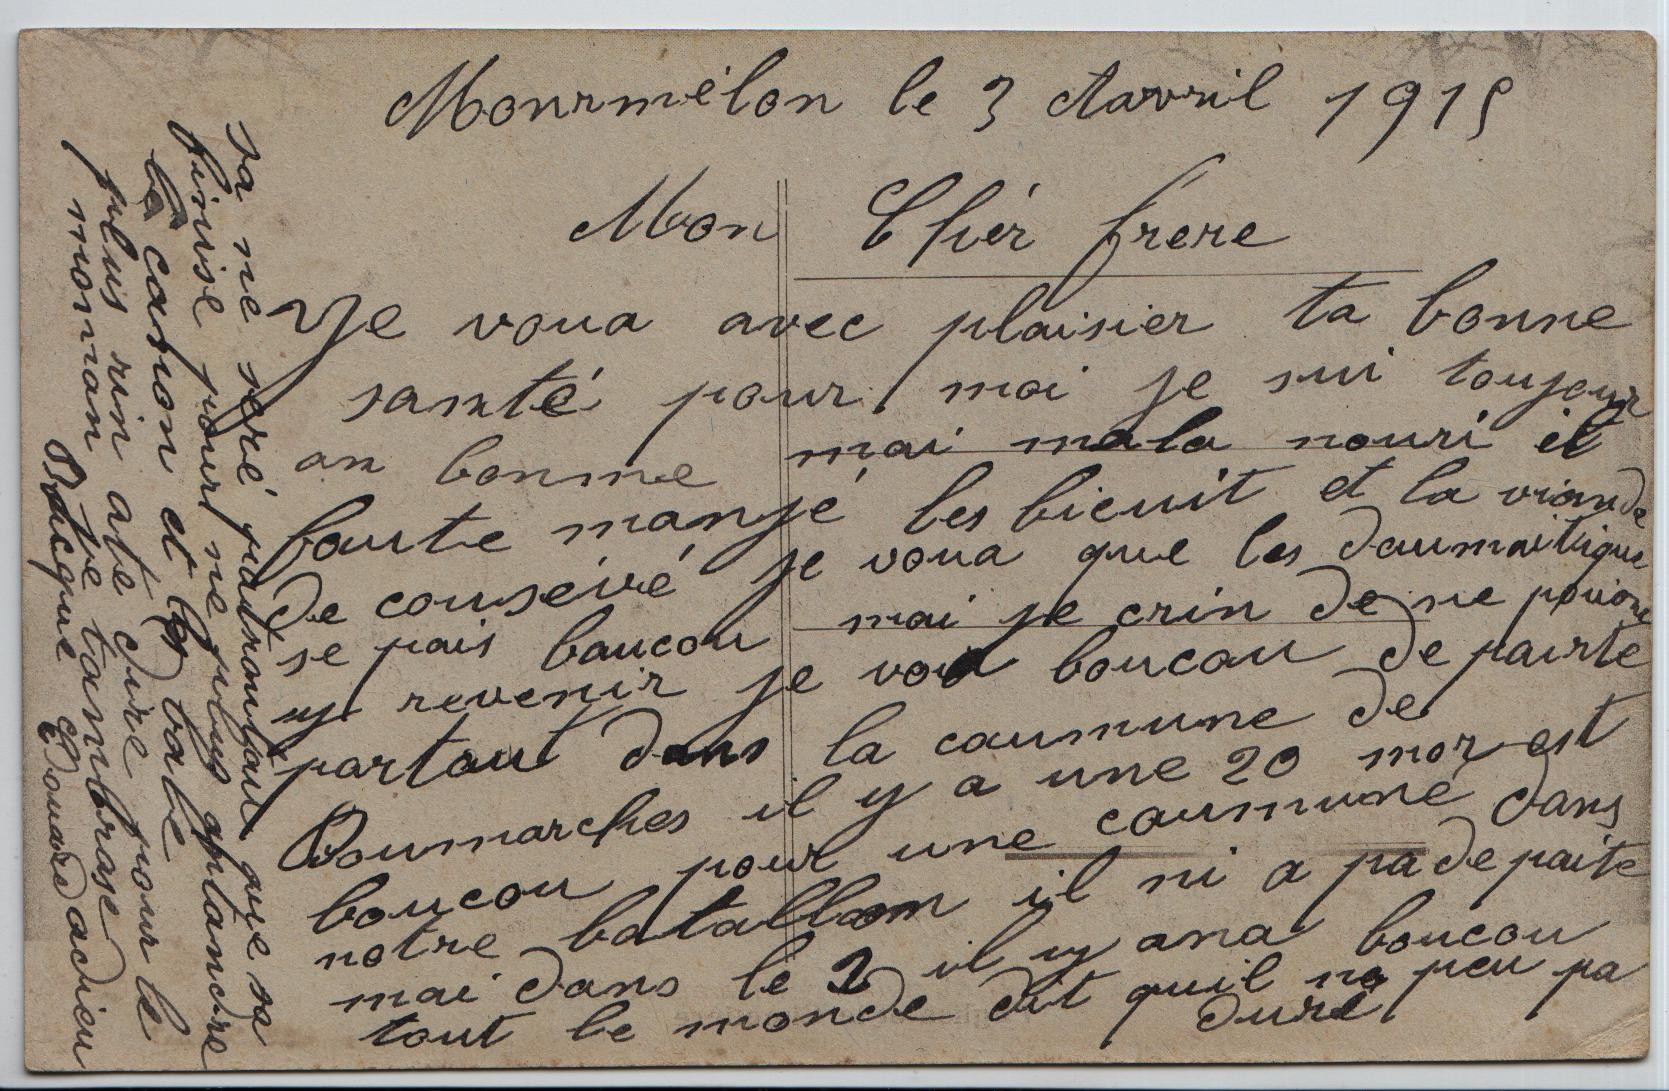 Mourmélon le 3 Avril 1915
Mon Chér frere
Je voua avec plaisier ta bonne
santé pour moi je sui toujour
an bonne mai mala nouri il
faute manjé les bicuit et la viande
de cousévé je voua que les daumaitique
se pais baucou mai je crin de ne pouvoire
y revenir je voia boucou de pairte
partout dans la caumune de
Doumarches il y a une 20 mor est
boucou pour une coumuné dans
notre batallon il ni a pa de paite
mai dans le 2 il y ana boucou
tout le monde dit quil ne peu pa
duré
sa ne seré patrautau que sa
finise pour ne plus antandre
le canon et les bale
plus rin ate dire pour le
moman je tambrase
Bracque Edouard adieu